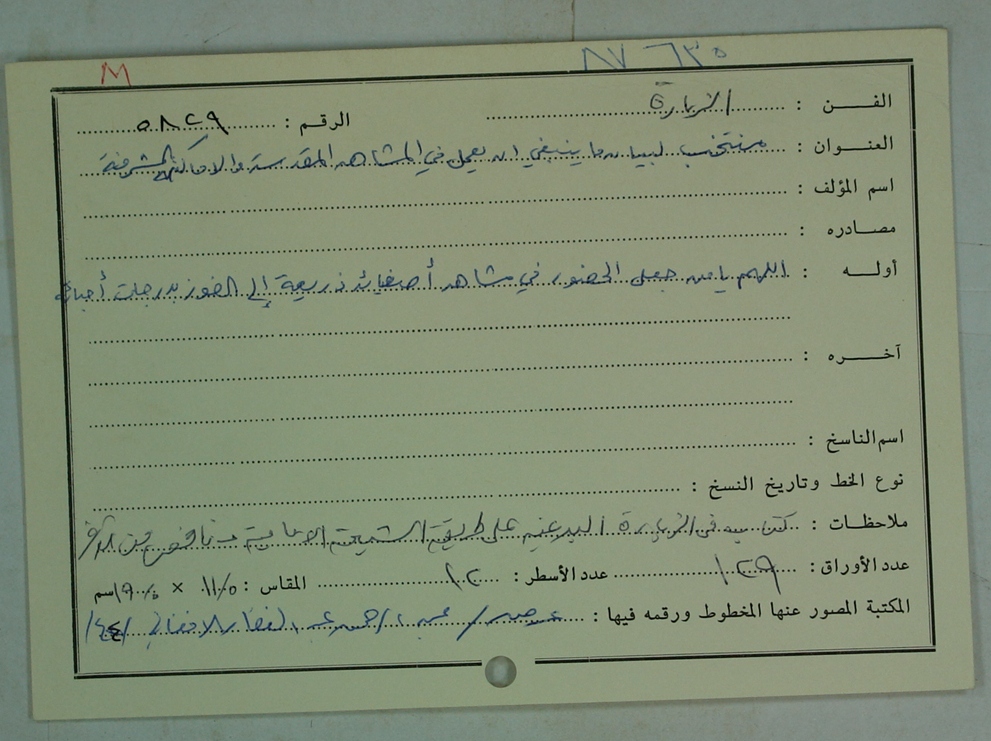 M ٨٧ ٦٣٥
الفـــن : الزيارة الرقم : ٥٨٢٩
العنـوان : منتخب لبيان ما ينبغي ان يعمل في المشاهد المقدسة والاماكن المشرفة
اسم المؤلف :
مصـادره :
أولـــه : اللهم يا من جعل الحضور في مشاهد أصفيائه ذريعة إلى الفوز بدرجات أحبائه
آخـــره :
اسم الناسخ :
نوع الخط وتاريخ النسخ :
ملاحظات : كتاب في الزيارة البدعية على طريقة الشيعة الامامية ناقص من الآخر
عدد الأوراق : ١٢٩ عدد الأسطر : ١٢ المقاس : ١١/٥ × ١٩/٥ سم
المكتبة المصور عنها المخطوط ورقمه فيها :